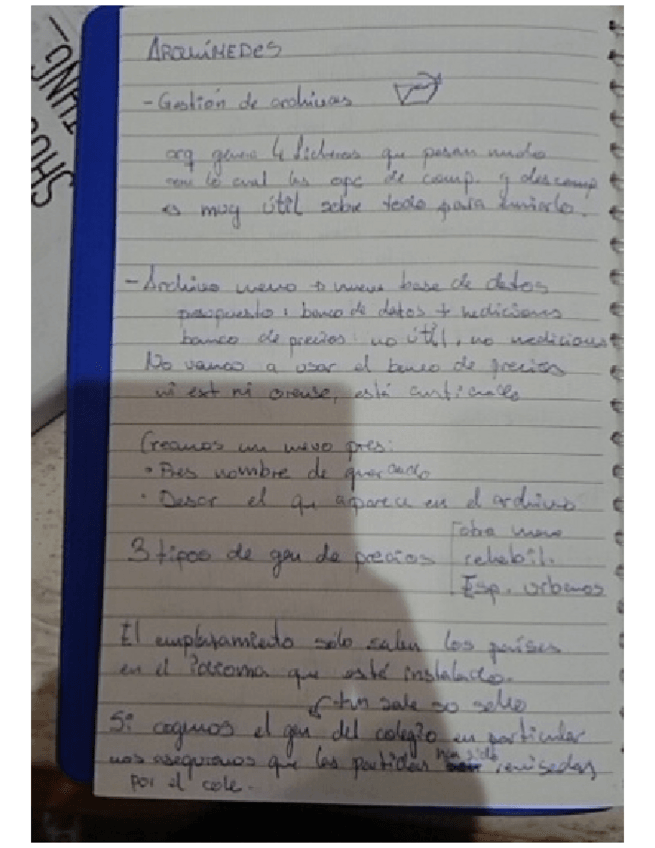 ARQUÍMEDES
- Gestión de archivos
arq genera ficheros que pesan mucho
con lo cual las opc de comp. y descomp
es muy útil sobre todo para enviarlo.
- Archivo nuevo → nueva base de datos
presupuesto: banco de datos + mediciones
banco de precios: no útil, no mediciones
No vamos a usar el banco de precios
ni est ni
Creamos un nuevo pres:
• Pres nombre de guardado
• Descr el q aparece en el archivo
3 tipos de gen de precios
obra nueva
rehabil.
Esp. urbanos
El emplazamiento solo salen los países
en el idioma que esté instalado.
sale so sello
Si cogemos el gen del colegio en particular
nos aseguramos que las partidas han sido revisadas
por el cole.